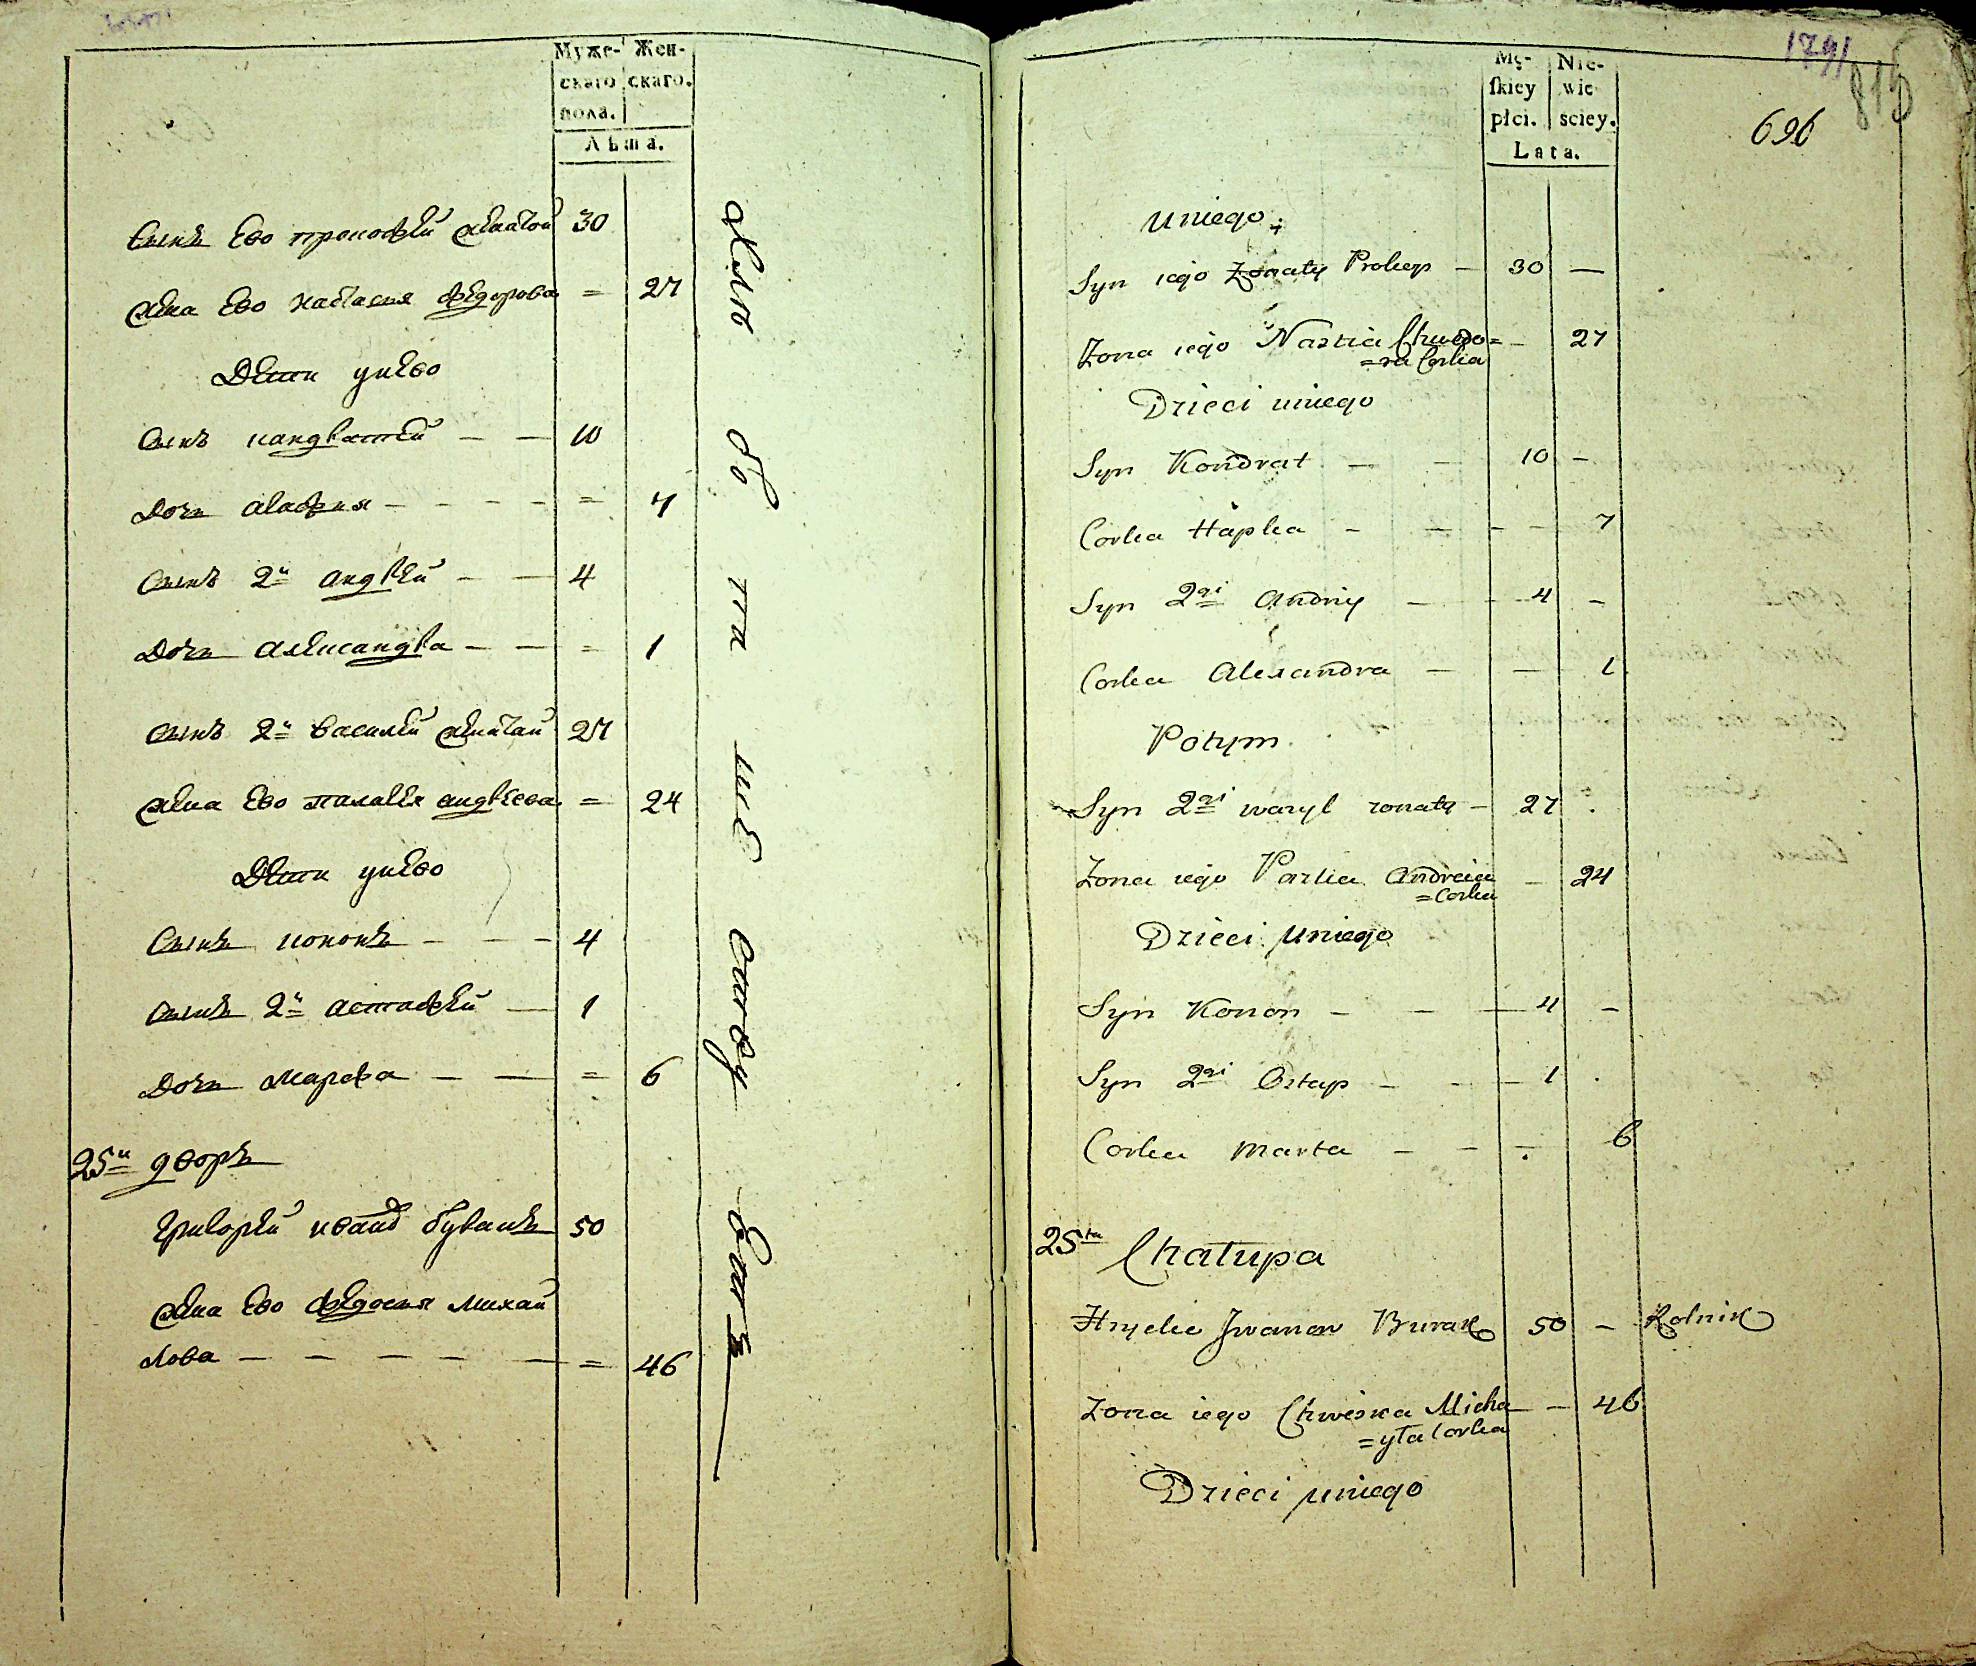 Муже- Жен-
скаго скаго.
пола.
Лѣта.
Сынъ Ево прокофей женатой 30
жена Ево настасья федорова = 27
Дети унево
Сынъ кандратей — — 10
Дочь агафья — — — — = 7
Сынъ 2й андрей — — 4
Дочь александра — — = 1
Сынъ 2й василей женатай 27
жена Ево палагея андреева = 24
Дети унево
Сынъ кононъ — — — 4
Сынъ 2й астафей — 1
Дочь марфа — — = 6
25й дворъ
Григорей иванов буракъ 50
жена Ево федосья михаи
лова — — — — — = 46
Mę- Nie-
skiey wie-
płci. sciey.
Lata.
1791
815
696
uniego;
Syn iego Zonaty Prokop — 30 —
Zona iego Nastia Chwedo= — 27
=ra Corka
Dzieci uniego
Syn Kondrat — — 10 —
Corka Hapka — — — — 7
Syn 2gi Andriy — — 4 —
Corka Alexandra — — 1
Potym
Syn 2gi wasyl zonaty — 27
Zona iego Paslia Andreia — 24
=Corka
Dzieci uniego
Syn Konon — — — 4 —
Syn 2gi Ostap — — — 1
Corka Marta — — — 6
25ta Chałupa
Hryćko Jwanow Burak 50 — Rolnik
Zona iego Chweśka Micha — 46
=yła Corka
Dzieci uniego